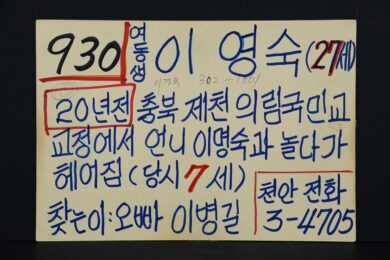 930 여동생 이영숙 (27세)
20년전 충북 제천 의림국민교
교정에서 언니 이명숙과 놀다가
헤어짐 (당시 7세)
찾는이: 오빠 이병길
천안 전화
3-4705